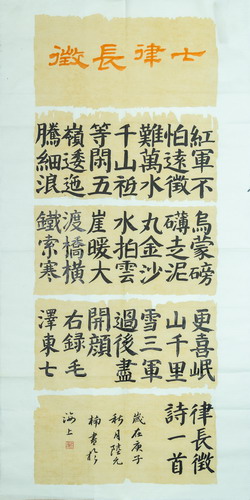 七律長徵
紅軍不
怕遠徵
難萬水
千山祗
等閑五
嶺逶迤
騰細浪
烏蒙磅
礴走泥
丸金沙
水拍雲
崖暖大
渡橋橫
鐵索寒
更喜岷
山千里
雪三軍
過後盡
開顔
右録毛
澤東七
律長徵
詩一首
歲在庚子
秋月陸元
楠書於
海上